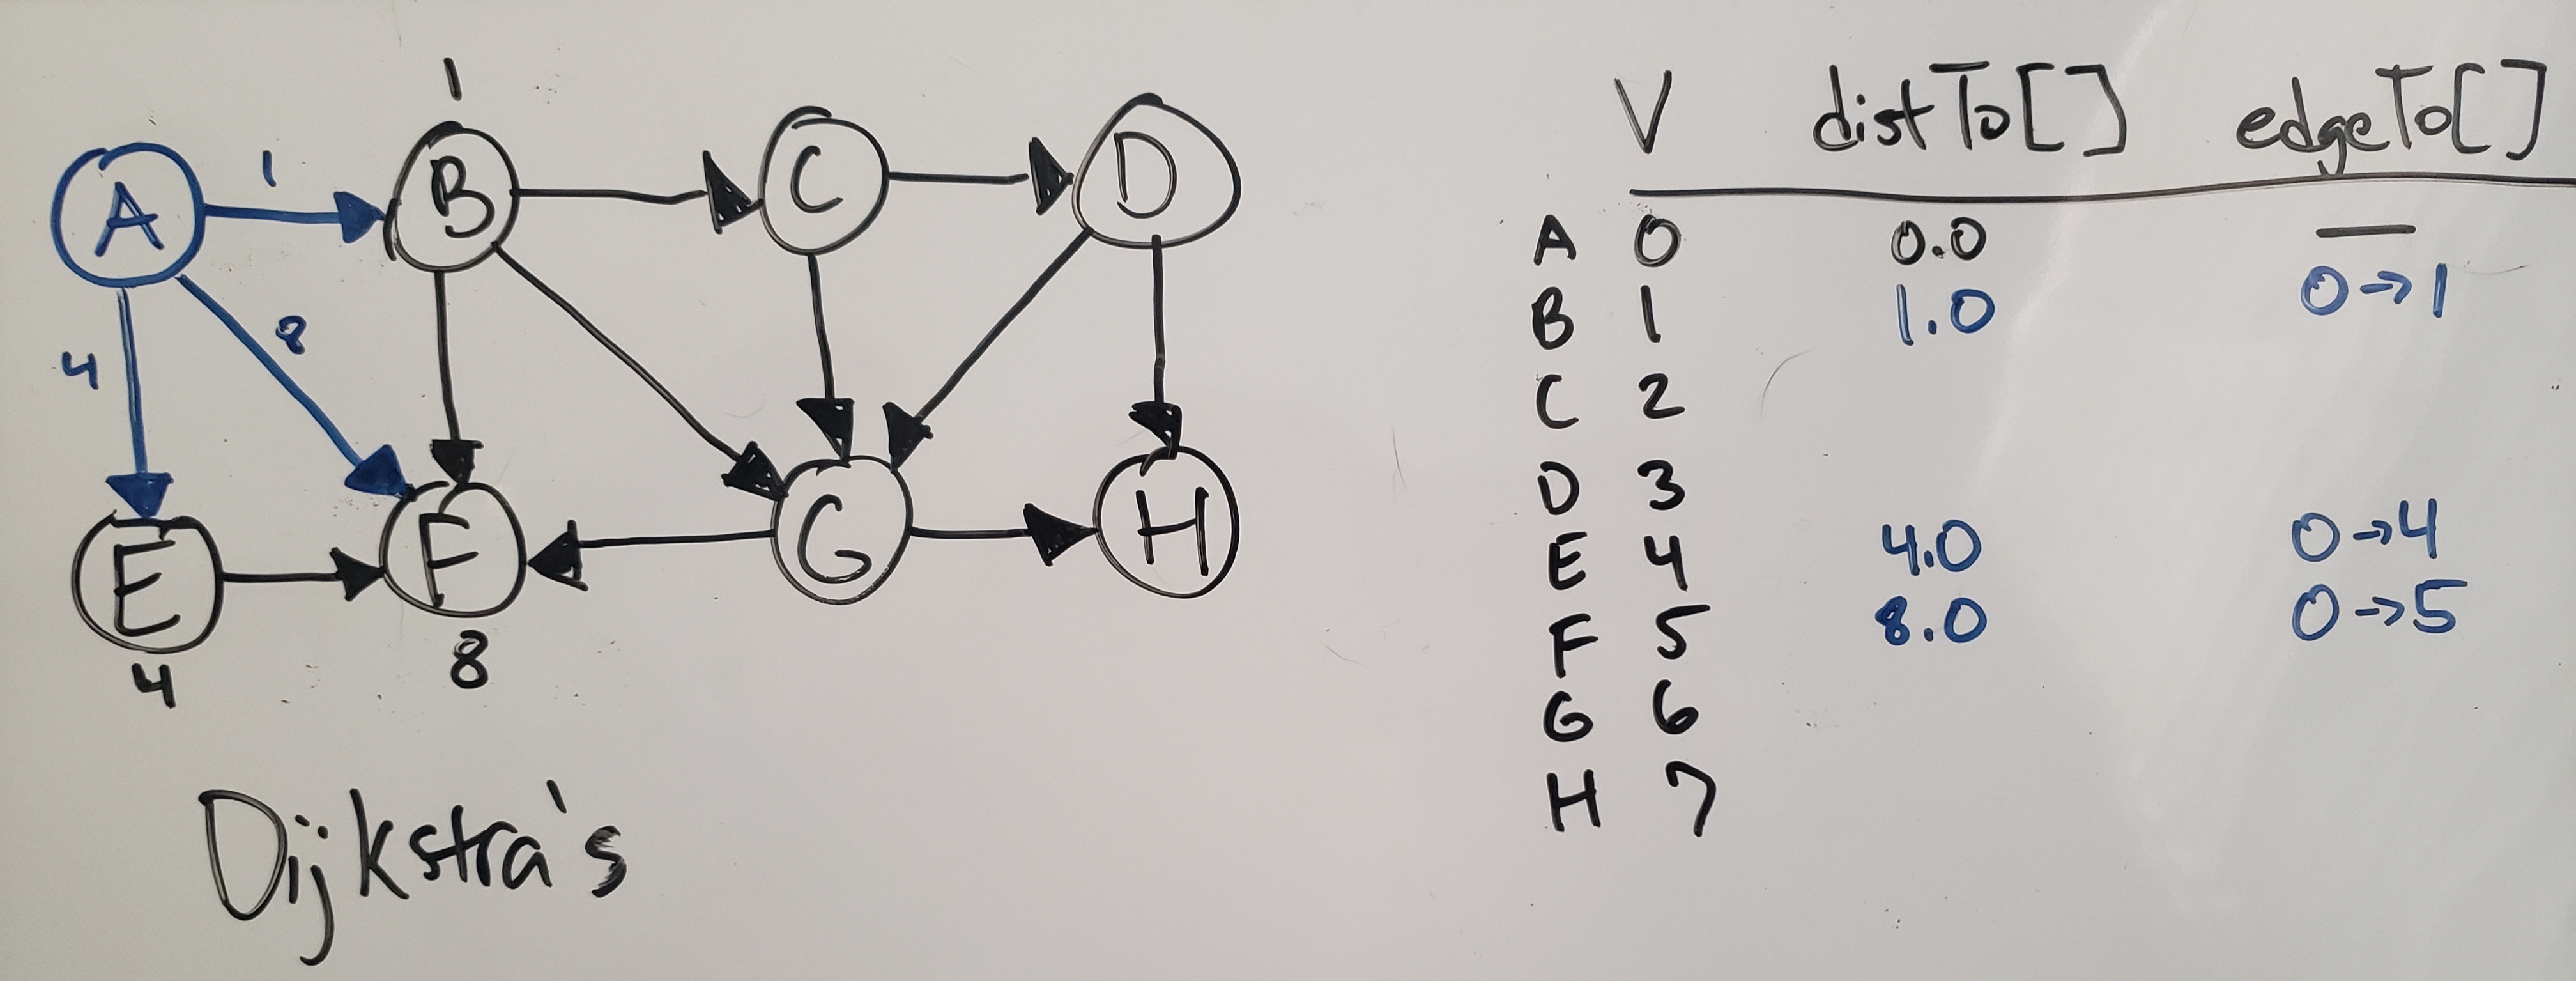 1
1
A
B
C
D
8
4
E
F
G
H
4
8
Dijkstra's
V distTo[] edgeTo[]
A 0 0.0 —
B 1 1.0 0→1
C 2
D 3
E 4 4.0 0→4
F 5 8.0 0→5
G 6
H 7